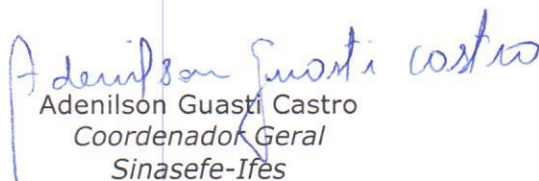 Adenilson Guasti castro
Adenilson Guasti Castro
Coordenador Geral
Sinasefe-Ifes